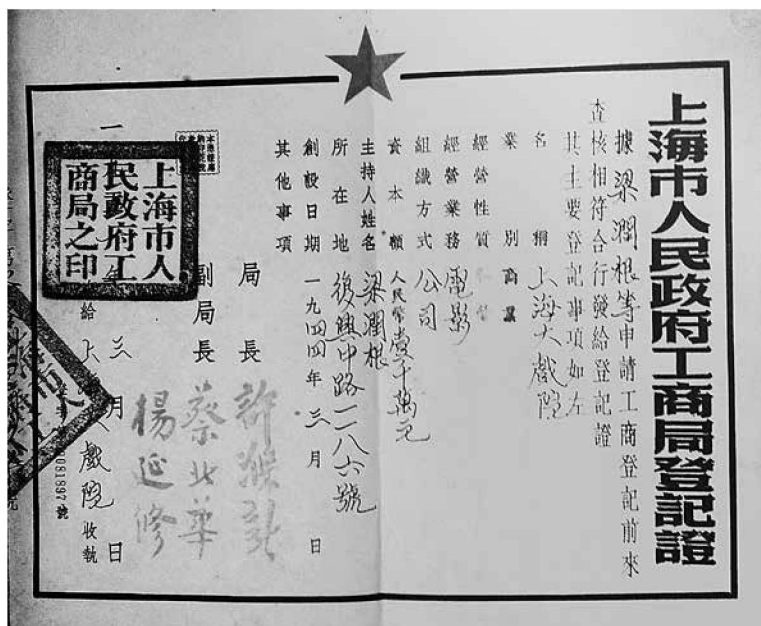 上海市人民政府工商局登記證
據梁潤根等申請工商登記前來
查核相符合行發給登記證
其主要登記事項如左
名稱 上海大戲院
業別 商業
經營性質
經營業務 電影
組織方式 公司
資本額 人民幣壹千萬元
主持人姓名 梁潤根
所在地 復興中路一一八六號
創設日期 一九四四年三月 日
其他事項
局長 許滌新
副局長 蔡北華
楊延修
上海市人
民政府工
商局之印
一 年三月 日
給上 大戲院收執
081897號